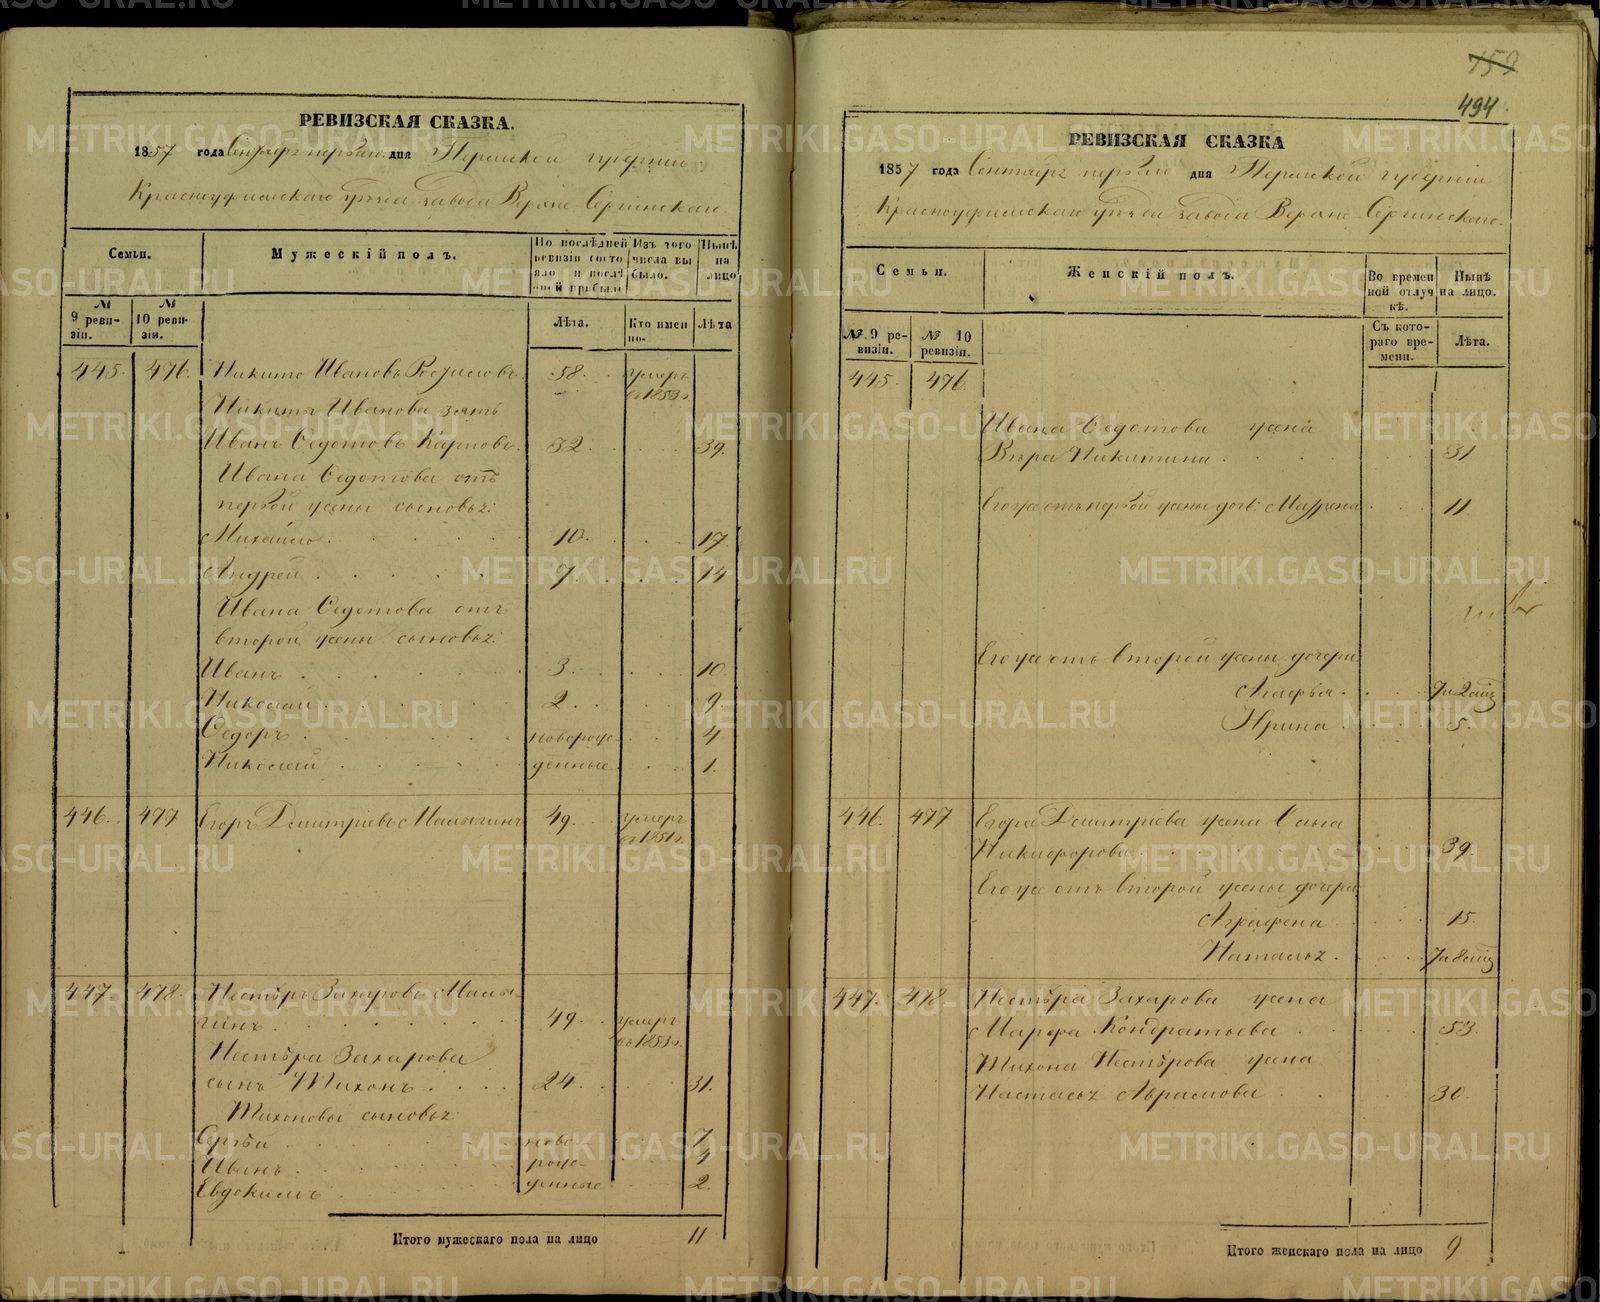 РЕВИЗСКАЯ СКАЗКА.
1857 года Сентября перваго дня Пермской губернии
Красноуфимскаго уѣзда завода Верхне-Сергинскаго
Семьи.
Мужескій полъ.
По послѣдней ревизіи состояло и послѣ оной прибыло
Изъ того числа выбыло.
Нынѣ на лицо
№ 9 ревизіи.
№ 10 ревизіи.
Лѣта.
Кто именно.
Лѣта
445. 476. Никита Ивановъ 58. умеръ въ 1853 г.
Никиты Иванова зять
Иванъ Ѳедотовъ Карповъ. 32. 39.
Ивана Ѳедотова отъ
первой жены сыновья:
Михайло. 10. 17
Андрей. 7. 14
Ивана Ѳедотова отъ
второй жены сыновья:
Иванъ. 3. 10
Николай. 2. 9.
Ѳедоръ. новорож- 4
Николай. денные 1.
446. 477 Егоръ Дмитріевъ Малыгинъ 49. умеръ въ 1851 г.
447. 478. Нестеръ Захаровъ Малы-
гинъ. 49. умеръ въ 1853 г.
Нестера Захарова
сынъ Тихонъ. 24. 31.
Тихоновы сыновья:
Сергѣй. ново- 7
Иванъ. рож- 4
Евдокимъ. денные 2.
Итого мужескаго пола на лицо 11
159
494.
РЕВИЗСКАЯ СКАЗКА
1857 года Сентября перваго дня Пермской губерніи
Красноуфимскаго уѣзда завода Верхне-Сергинскаго.
Семьи.
Женскій полъ.
Во временной отлучкѣ.
Нынѣ на лицо.
№ 9 ревизіи.
№ 10 ревизіи.
Съ котораго времени.
Лѣта.
445. 476.
Ивана Ѳедотова жена
Вѣра Никитина. 31.
Его же отъ первой жены дочь: 11
Его же отъ второй жены дочери
Агафья. 7 и 2 мѣс
Ирина. 5.
446. 477 Егора Дмитріева жена
Никифорова. 39.
Его же отъ второй жены дочери
Аграфена 15.
Наталья. 7 и 8 мѣс
447. 478 Нестера Захарова жена
Марфа Кондратьева. 53.
Тихона Нестерова жена
Настасья Аврамова. 30.
Итого женскаго пола на лицо 9
METRIKI.GASO-URAL.RU